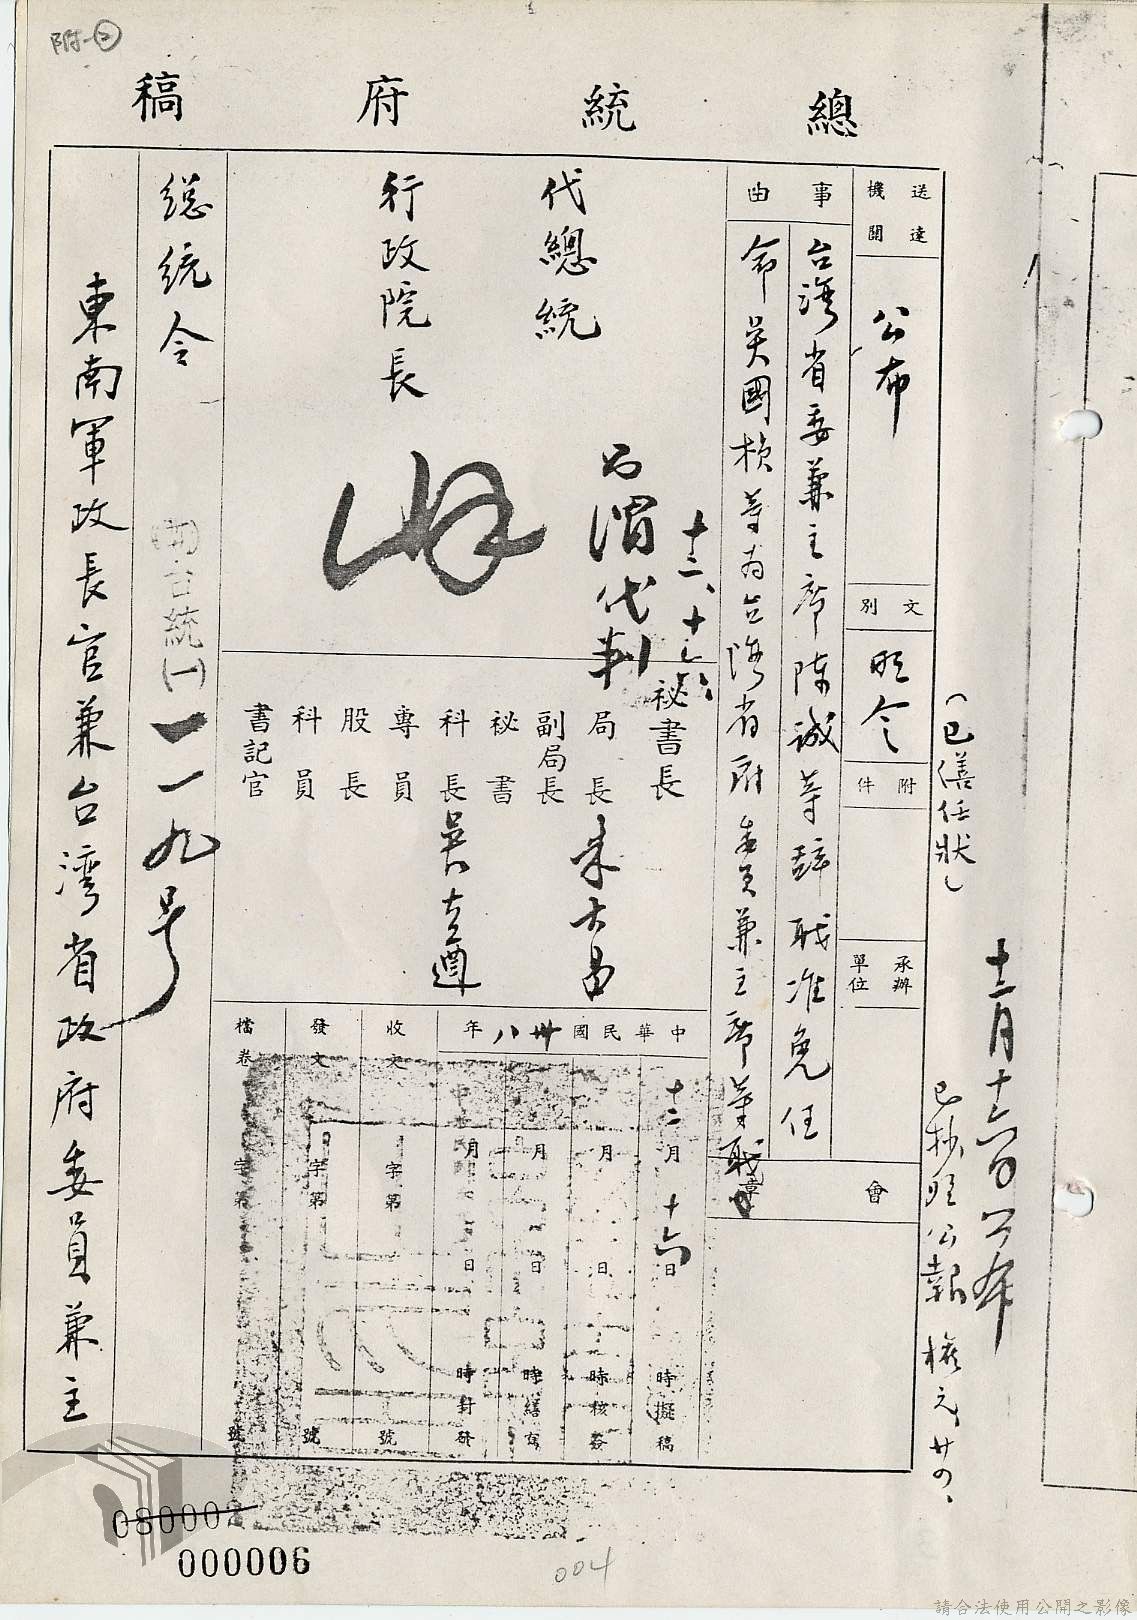 附㊁
總統府稿
送達機關
公布
文別
明令
附件
承辦單位
事由
台灣省委兼主席陳誠等辭職准免任
命吳國楨等為台灣省府委員兼主席等職
會
章
代總統
代判
十二、十六
行政院長
秘書長
局長
副局長
秘書
科長
專員
股長
科員
書記官
中華民國卅八年
十二月十六日時擬稿
月日時核簽
月日時繕寫
月日時封發
收文字第號
發文字第號
檔卷字第號
總統令
台統(一)一一九号
東南軍政長官兼台灣省政府委員兼主
(已繕任狀)
十二月十六日公布
已抄登公報
元、廿四、
080002
000006
004
請合法使用公開之影像